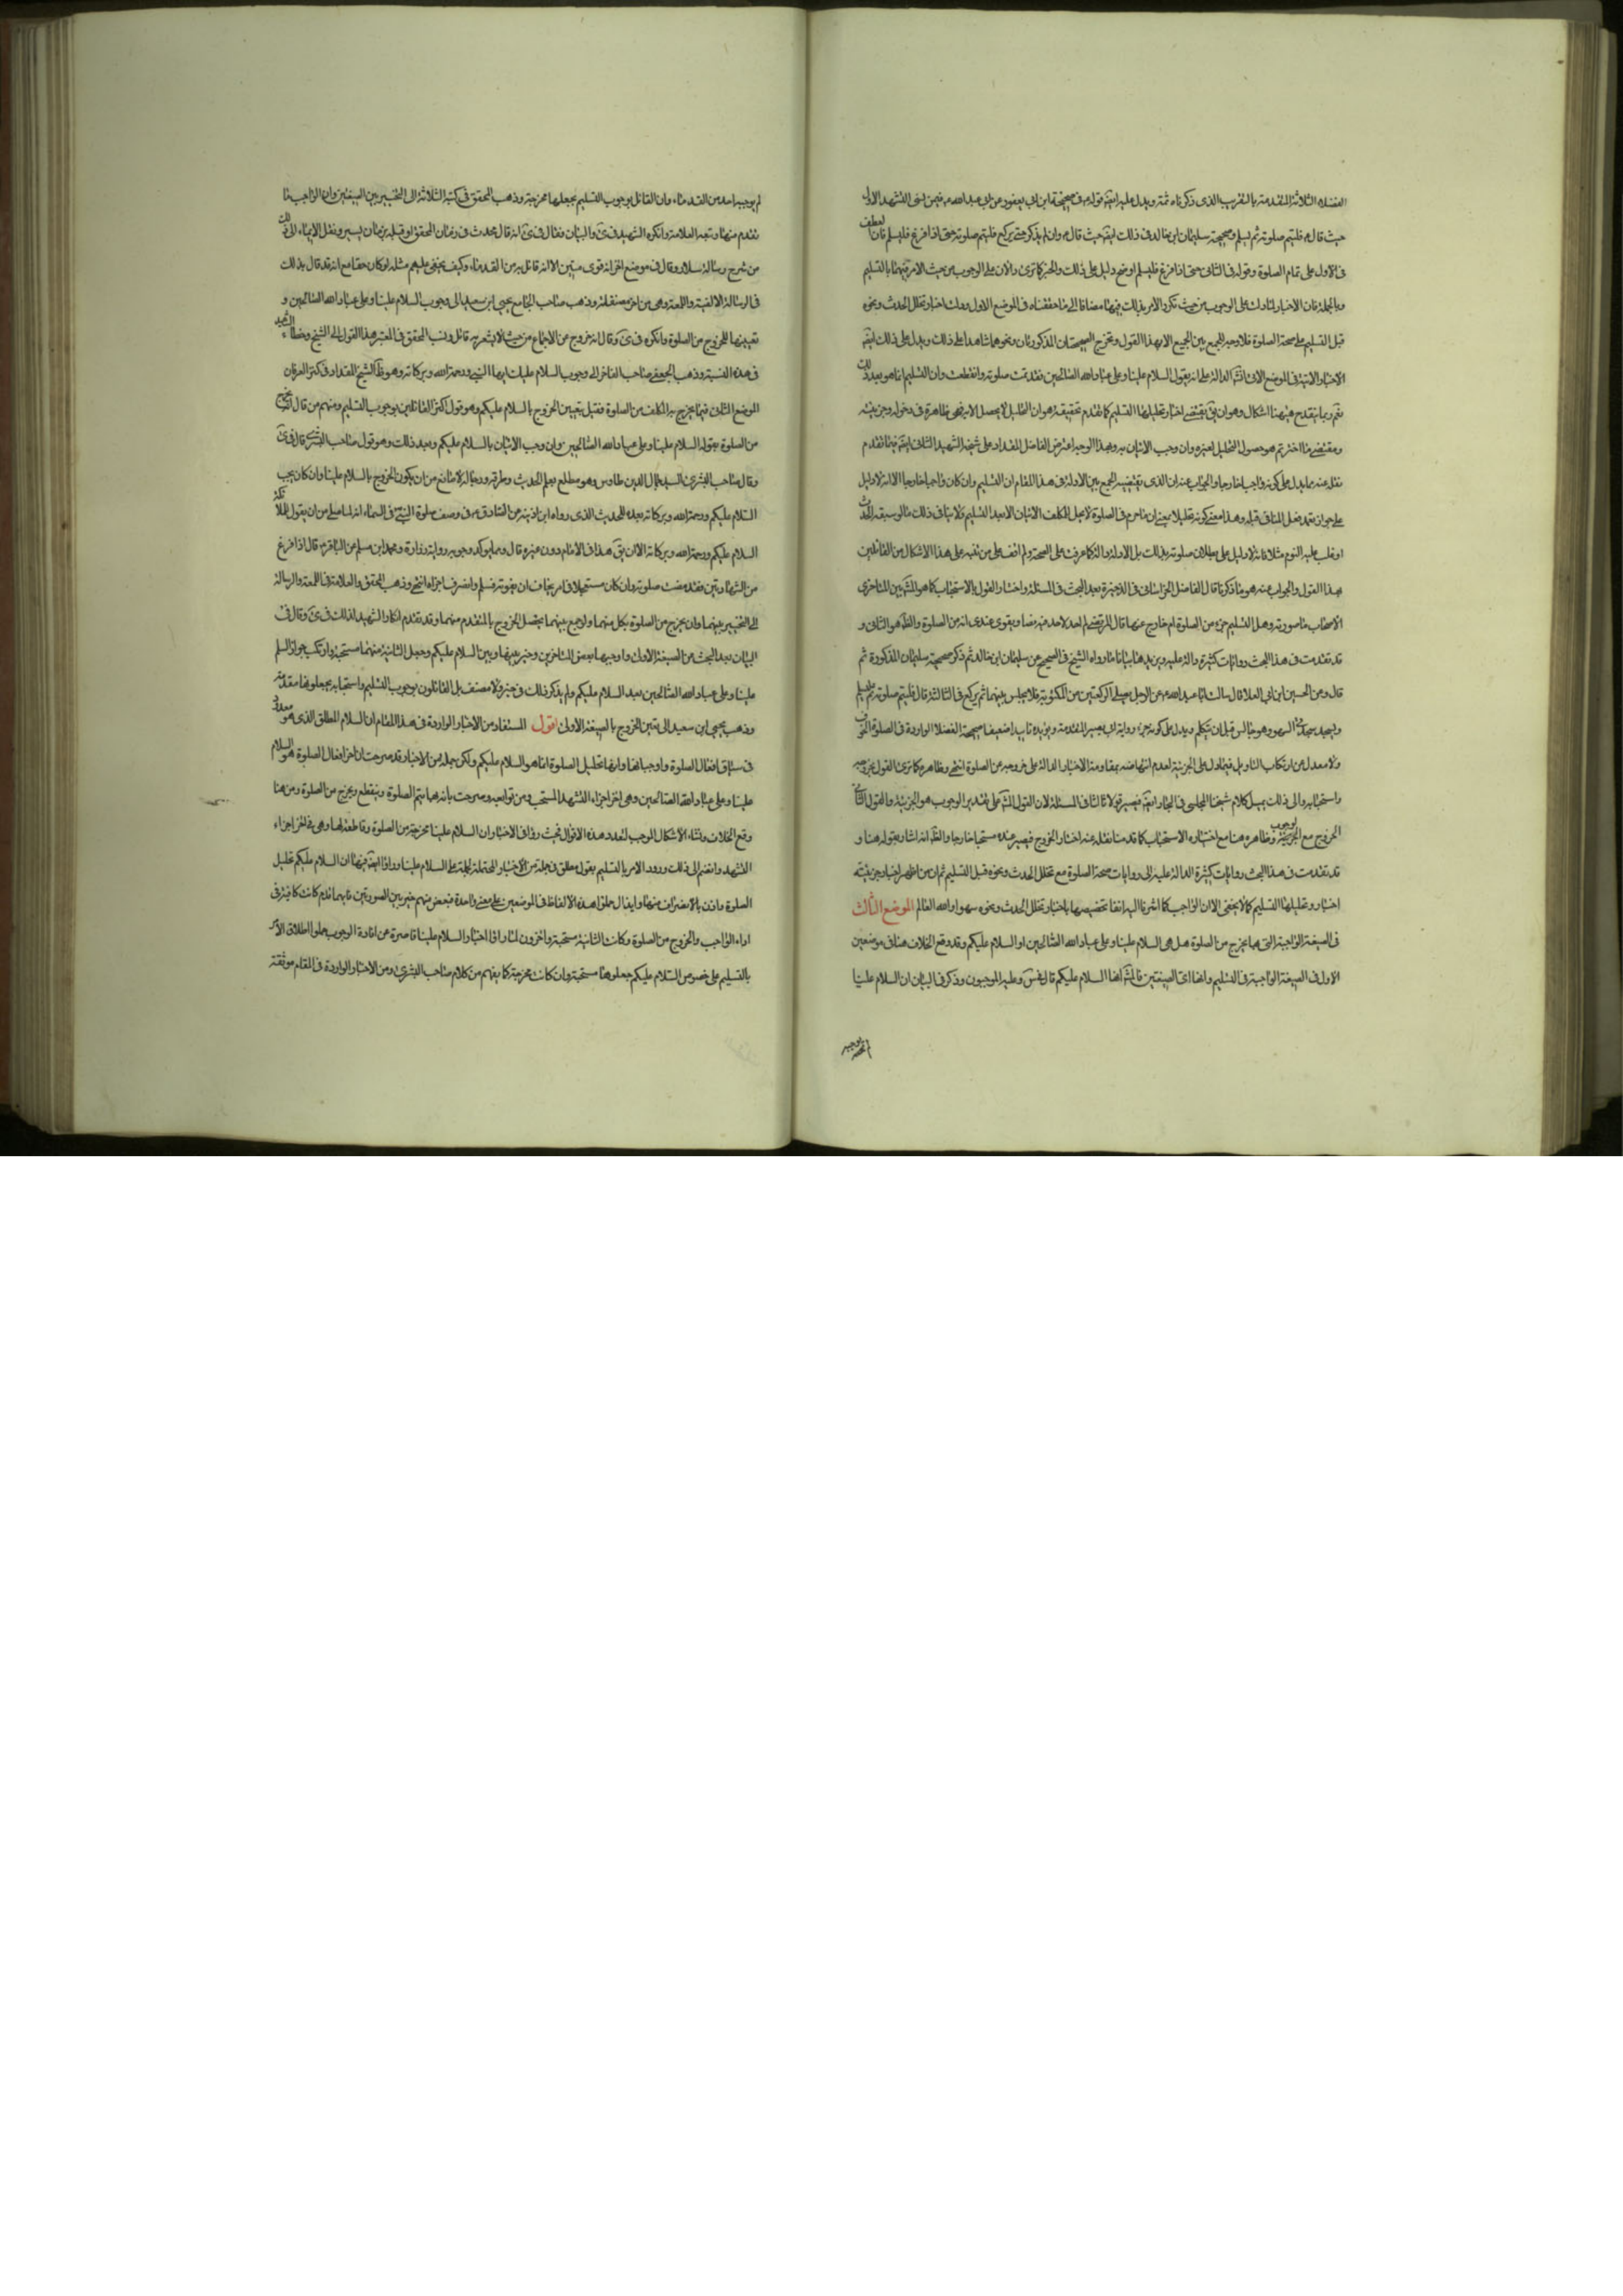 الفضلاء الثلاثة المتقدمة بالتقريب الذي ذكرناه ثمة ويدل عليه ايضا قوله في صحيحة ابن ابي يعفور عن ابي عبد الله ع فيمن نسي التشهد الاول
حيث قال فليتم صلوته ثم يسلم وصحيحة سليمان ابن خالد في ذلك ايضا حيث قال وان لم يذكر حتى يركع فليتم صلوته حتى اذا فرغ فليسلم فان لعطف
في الاول على تمام الصلوة وقوله في الثاني حتى اذا فرغ فليسلم اوضح دليل على ذلك والخبر كما ترى دالان على الوجوب من حيث الامر فيهما بالتسليم
وبالجملة فان الاخبار لما دلت على الوجوب من حيث تكرر الامر بذلك فيها مضافا الى ما حققناه في الموضع الاول ودلت اخبار تخلل الحدث ونحوه
قبل التسليم على صحة الصلوة فلا وجه للجمع بين الجميع الا بهذا القول وتخرج الصحيحتان المذكورتان ونحوهما شاهدا على ذلك ويدل على ذلك ايضا
الاخبار الاتية في الموضع الاتي انش الدالة على انه بقول السلام علينا وعلى عباد الله الصالحين فقد تمت صلوته وانقطعت وان التسليم انما هو بعد ذلك
نعم ربما ينقدح هيهنا اشكال وهو ان يق مقتضى اخبار تحليلها التسليم كما تقدم تحقيقه هو ان التحليل لا يحصل الا به فهي ظاهرة في دخوله وجزئيته
ومقتضى ما اخترتم هو حصول التحليل بغيره وان وجب الاتيان به وبهذا الوجه اعترض الفاضل المقداد على شيخه الشهيد الثاني ايضا فيما تقدم
نقله عنه مما يدل على كونه واجبا خارجا والجواب عنه ان الذي يقتضيه الجمع بين الادلة في هذا المقام ان التسليم وان كان واجبا خارجا الا انه لا دليل
على جواز تعمد فعل المنافي قبله وهذا معنى كونه تحليلا بمعنى ان ما حرم في الصلوة لا يحل للمكلف الاتيان الا بعد التسليم ولا ينافي ذلك ما لو سبقه الحدث
او غلب عليه النوم مثلا فانه لا دليل على بطلان صلوته بذلك بل الادلة دالة كما عرفت على الصحة ولم اقف على من نبه على هذا الاشكال من القائلين
بهذا القول والجواب عنه هو ما ذكرنا قال الفاضل الخراساني في الذخيرة بعد البحث في المسئلة واختار القول بالاستحباب كما هو المش بين المتاخرى
الاصحاب ما صورته وهل التسليم جزء من الصلوة ام خارج عنها قال المرتضى لم اجد لاحد فيه نصا ويقوى عندي انه من الصلوة والظ هو الثاني و
قد تقدمت في هذا البحث روايات كثيرة دالة عليه ويزيد هنا بيانا ما رواه الشيخ في الصحيح عن سليمان ابن خالد ثم ذكر صحيحة سليمان المذكورة ثم
قال وعن الحسين ابن ابي العلا قال سالت ابا عبد الله ع عن الرجل يصلي الركعتين من المكتوبة فلا يجلس بينهما ثم يركع في الثالثة قال فليتم صلوته ثم يسلم
ويسجد سجدتي السهو وهو جالس قبل ان يتكلم ويدل على كونه جزءا رواية ابي بصير المتقدمة ويؤيده تاييدا ضعيفا صحيحة الفضلا الواردة في الصلوة الخوف
ولا معدل عن ارتكاب التاويل فيما دل على الجزئية لعدم انتهاضه بمقاومة الاخبار الدالة على خروجه عن الصلوة انتهى وظاهره كما ترى القول بخروجه
واستحبابه والى ذلك يميل كلام شيخنا المجلسي في البحار ايضا فيصير قولا ثالثا في المسئلة لان القول المش على تقدير الوجوب هو الجزئية والقول الثاني
الخروج مع الوجوب وظاهره هنا مع اختياره الاستحباب كما قدمنا نقله عنه اختار الخروج فيصير عنده مستحبا خارجا والظ انه اشار بقوله هنا و
قد تقدمت في هذا البحث روايات كثيرة الدالة عليه الى روايات صحة الصلوة مع تخلل الحدث ونحوه قبل التسليم ثم ان من اظهر اخبار جزئيته
اخبار وتحليلها التسليم كما لا يخفى الا ان الواجب كما اشرنا اليه انفا تخصيصها باخبار تخلل الحدث ونحوه سهوا والله العالم الموضع الثالث
في الصيغة الواجبة التي بها يخرج من الصلوة هل هي السلام علينا وعلى عباد الله الصالحين او السلام عليكم وقد وقع الخلاف هنا في موضعين
الاول في الصيغة الواجبة في التسليم وانها اي الصيغتين فالمش انها السلام عليكم قال في س وعليه الموجبون وذكر في البيان ان السلام علينا
لم يوجبه احد من القدماء وان القائل بوجوب التسليم يجعلها مخرجة وذهب المحقق في كتبه الثلاثة الى التخيير بين الصيغتين وان الواجب ما
تقدم منهما وتبعه العلامة وانكره الشهيد في ى والبيان فقال في ى انه قال محدث في زمان المحقق او قبله بزمان يسير ونقل الايماء الى ذلك
من شرح رسالة سلار وقال في موضع اخر انه قوى متين الا انه لا قائل به من القدماء وكيف يخفى عليهم مثله لو كان حقا مع انه قد قال بذلك
في الرسالة الالفية واللمعة وهي من اخر مصنفاته وذهب صاحب الجامع يحيى ابن سعيد الى وجوب السلام علينا وعلى عباد الله الصالحين و
تعيينها للخروج من الصلوة وانكره في ى وقال انه خروج عن الاجماع من حيث لا يشعر به قائل ونسب المحقق في المعتبر هذا القول الى الشيخ وخطاه الشهيد
في هذه النسبة وذهب الجعفي صاحب الفاخر الى وجوب السلام عليك ايها النبي ورحمة الله وبركاته وهو ظ الشيخ المقداد في كنز العرفان
الموضع الثاني فيما يخرج به المكلف من الصلوة فقيل بتعيين الخروج بالسلام عليكم وهو قول اكثر القائلين بوجوب التسليم ومنهم من قال انه يخرج
من الصلوة بقوله السلام علينا وعلى عباد الله الصالحين وان وجب الاتيان بالسلام عليكم وبعد ذلك وهو قول صاحب البشرى قال في ى
وقال صاحب البشرى السيد جمال الدين طاوس وهو مطلع بعلم الحديث وطرقه ورجاله لا مانع من ان يكون الخروج بالسلام علينا وان كان يجب
السلام عليكم ورحمة الله وبركاته بعده للحديث الذي رواه ابن اذينة عن الصادق ع في وصف صلوة النبي ص في السماء انه لما صلى من ان يقول للملائكة
السلام عليكم ورحمة الله وبركاته الا ان يق هذا في الامام دون غيره قال ومما يؤكد وجوبه رواية زرارة ومحمد ابن مسلم عن الباقر ع قال اذا فرغ
من الشهادتين فقد مضت صلوته وان كان مستعجلا في امر يخاف ان يفوته فسلم وانصرف اجزاه انتهى وذهب المحقق والعلامة في اللمعة والرسالة
الى التخيير بينهما وان يخرج من الصلوة بكل منهما ولو جمع بينهما يحصل الخروج بالمتقدم منهما وقد تقدم انكار الشهيد لذلك في ى وقال في
البيان بعد البحث عن الصيغة الاولى واوجبها بعض المتاخرين وخير بينها وبين السلام عليكم وجعل الثانية منهما مستحبة وارتكب جواز السلم
علينا وعلى عباد الله الصالحين بعد السلام عليكم ولم يذكر ذلك في خبر ولا مصنف بل القائلون بوجوب التسليم واستحبابه يجعلونها مقدمة
وذهب يحيى ابن سعيد الى تعين الخروج بالصيغة الاولى اقول المستفاد من الاخبار الواردة في هذا المقام ان السلام المطلق الذي هو معدود
في سياق افعال الصلوة وواجباتها وانها تحليل الصلوة انما هو السلام عليكم ولكن جملة من الاخبار قد صرحت ان اخر افعال الصلوة هو السلام
علينا وعلى عباد الله الصالحين وهي اخر اجزاء التشهد المستحب ومن توابعه وصرحت بانه بها يتم الصلوة وينقطع ويخرج من الصلوة ومن هنا
وقع الخلاف ونشاء الاشكال الموجب لتعدد هذه الاقوال فحيث راوا في الاخبار ان السلام علينا مخرجة من الصلوة وقاطعة لها وهي في اخر اجزاء
التشهد وانضم الى ذلك ورود الامر بالتسليم بقول مطلق في جملة من الاخبار المحتملة لحمله على السلام علينا وراوا ايضا فيها ان السلام عليكم تحليل
الصلوة واذن بالانصراف منها وايقال حملوا هذه الالفاظ في الموضعين على معنى واحدة فبعض منهم خير بين الصورتين فايهما قدم كانت كافية في
اداء الواجب والخروج من الصلوة وكانت الثانية مستحبة واخرون لما راوا اخبار السلام علينا قاصرة عن افادة الوجوب حملوا اطلاق الامر
بالتسليم على خصوص السلام عليكم جعلوها مستحبة وان كانت مخرجة كما يفهم من كلام صاحب البشرى ومن الاخبار الواردة في المقام موثقة